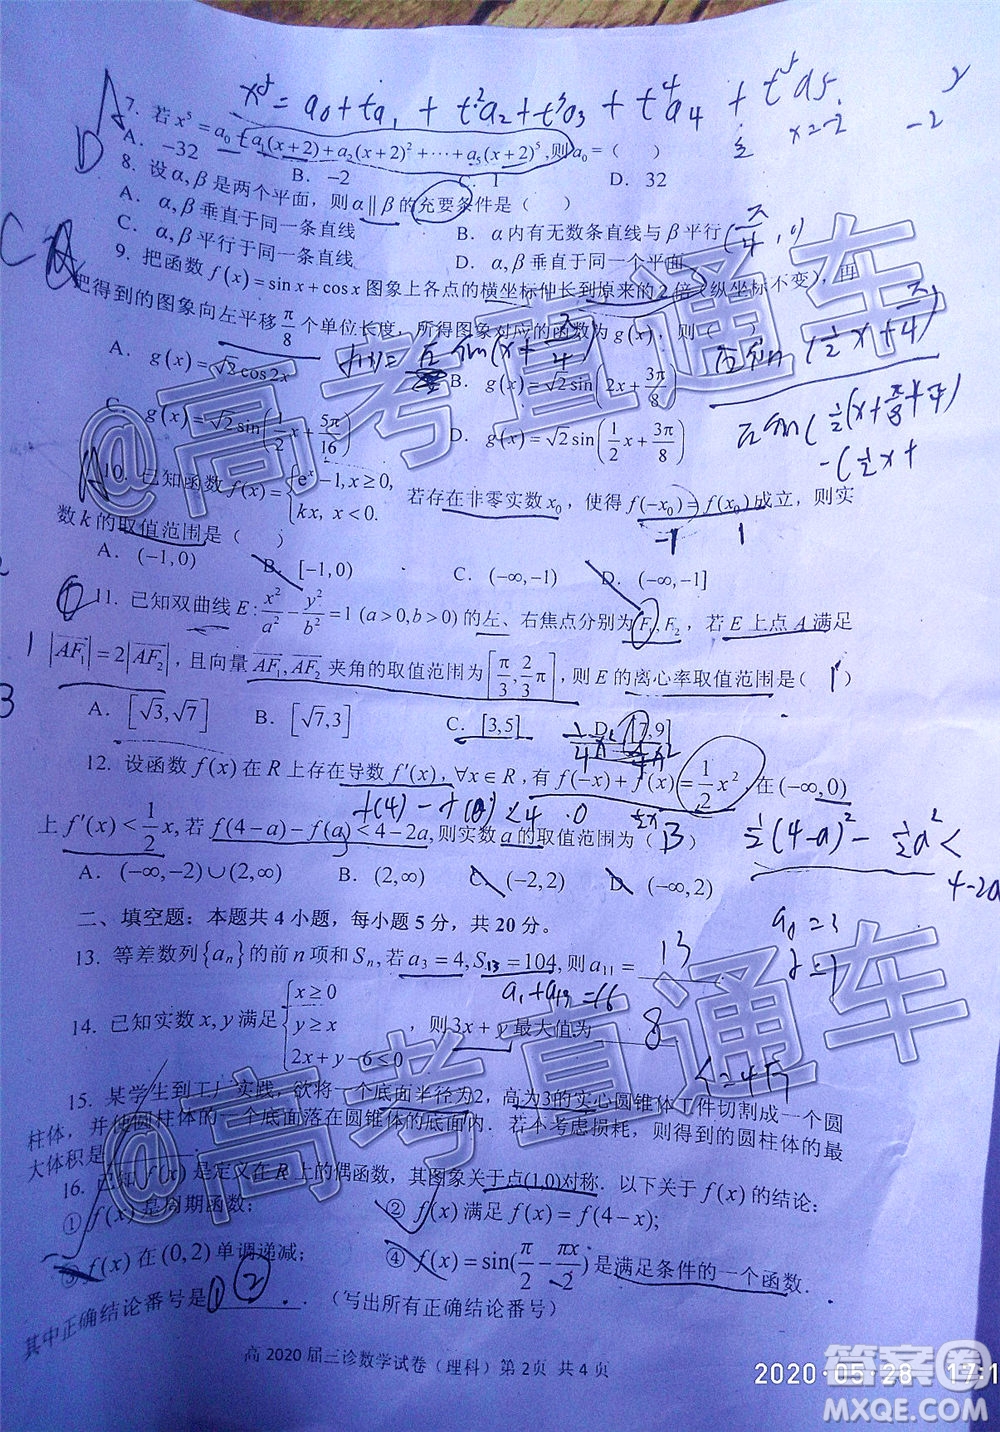 x⁵ = a₀ + ta₁ + t²a₂ + t³a₃ + t⁴a₄ + t⁵a₅
x=-2
-2
A
7. 若 x⁵ = a₀ + a₁(x+2) + a₂(x+2)² + ⋯ + a₅(x+2)⁵, 则 a₀ = ( )
A. -32 B. -2 C. 1 D. 32
D
8. 设 α, β 是两个平面，则 α∥β 的充要条件是（ ）
A. α, β 垂直于同一条直线 B. α 内有无数条直线与 β 平行
C. α, β 平行于同一条直线 D. α, β 垂直于同一个平面
(π/4, 0)
C
9. 把函数 f(x) = sin x + cos x 图象上各点的横坐标伸长到原来的 2 倍（纵坐标不变），再
把得到的图象向左平移 π/8 个单位长度，所得图象对应的函数为 g(x)，则（ ）
f(x) = √2 sin(x + π/4)
√2 sin(½x + π/4)
A. g(x) = √2cos2x B. g(x) = √2sin(2x + 3π/8)
C. g(x) = √2sin(½x + 5π/16) D. g(x) = √2sin(½x + 3π/8)
√2 sin(½(x + π/8) + π/4)
-(½x +
A
10. 已知函数 f(x) = {eˣ - 1, x ≥ 0, kx, x < 0. 若存在非零实数 x₀，使得 f(-x₀) = f(x₀) 成立，则实
数 k 的取值范围是（ ）
-1 1
A. (-1,0) B. [-1,0) C. (-∞,-1) D. (-∞,-1]
11. 已知双曲线 E: x²/a² - y²/b² = 1 (a>0,b>0) 的左、右焦点分别为 F₁, F₂，若 E 上点 A 满足
|AF₁| = 2|AF₂|，且向量 AF₁, AF₂ 夹角的取值范围为 [π/3, 2/3 π]，则 E 的离心率取值范围是（ ）
A. [√3,√7] B. [√7,3] C. [3,5] D. [7,9]
12. 设函数 f(x) 在 R 上存在导数 f′(x)，∀x∈R，有 f(-x) + f(x) = ½x²，在 (-∞,0)
f(4) - f(0) < 4 · 0
½x
上 f′(x) < ½x, 若 f(4-a) - f(a) < 4-2a, 则实数 a 的取值范围为（ B ）
½(4-a)² - ½a² <
4-2a
A. (-∞,-2)∪(2,∞) B. (2,∞) C. (-2,2) D. (-∞,2)
二、填空题：本题共 4 小题，每小题 5 分，共 20 分。
a₁=3
13. 等差数列 {aₙ} 的前 n 项和 Sₙ, 若 a₃ = 4, S₁₃ = 104, 则 a₁₁ = 13
14. 已知实数 x, y 满足 {x ≥ 0 y ≥ x 2x + y - 6 < 0 ，则 3x + y 最大值为 8
15. 某学生到工厂实践，欲将一个底面半径为2，高为3的实心圆锥体工件切割成一个圆
柱体，并使圆柱体的一个底面落在圆锥体的底面内．若不考虑损耗，则得到的圆柱体的最
大体积是
16. 已知 f(x) 是定义在 R 上的偶函数，其图象关于点(1,0)对称．以下关于 f(x) 的结论：
① f(x) 是周期函数； ② f(x) 满足 f(x) = f(4-x);
③ f(x) 在 (0,2) 单调递减； ④ f(x) = sin(π/2 - πx/2) 是满足条件的一个函数．
其中正确结论番号是 ① ② ．（写出所有正确结论番号）
高 2020 届三诊数学试卷（理科）第 2页 共 4 页
@高考直通车
@高考直通车
2020-05-28 17:1
答案圈
MXQE.COM